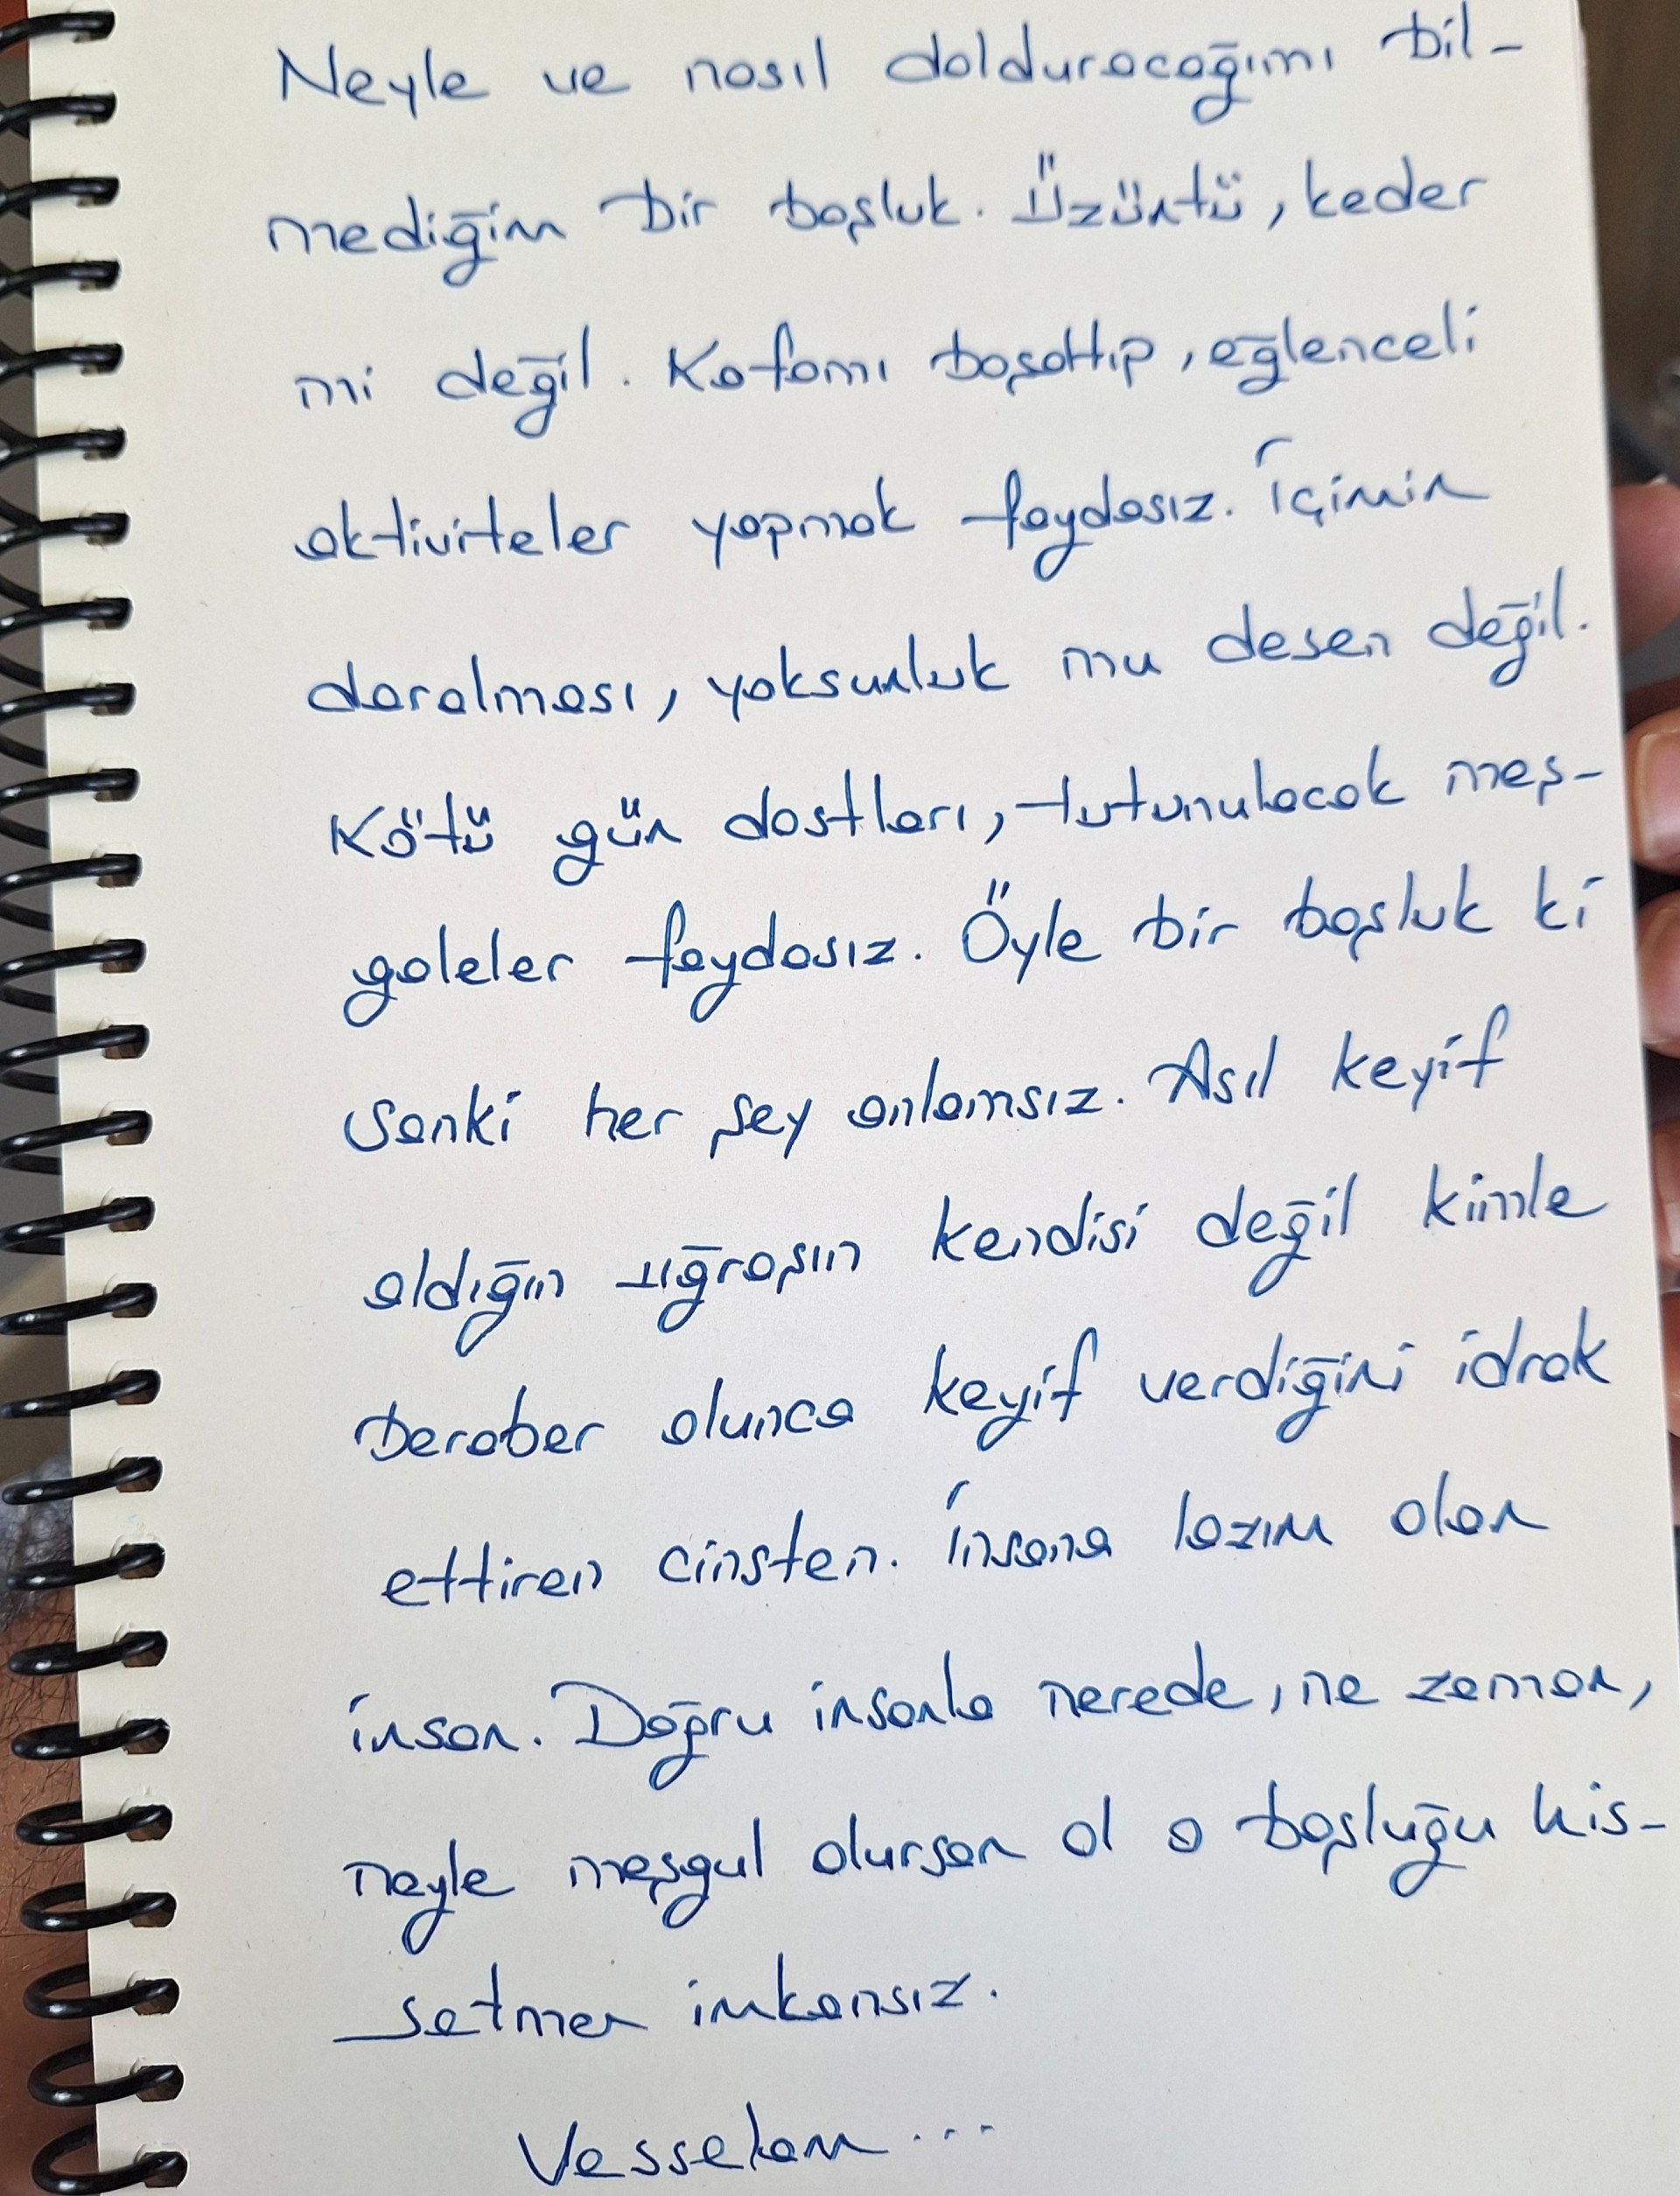 Neyle ve nasıl dolduracağımı bil-
mediğim bir boşluk. Üzüntü, keder
mi değil. Kafamı boşaltıp, eğlenceli
aktiviteler yapmak faydasız. İçimin
daralması, yoksunluk mu desen değil.
Kötü gün dostları, tutunulacak meş-
galeler faydasız. Öyle bir boşluk ki
sanki her şey anlamsız. Asıl keyif
aldığın uğraşın kendisi değil kimle
beraber olunca keyif verdiğini idrak
ettiren cinsten. İnsana lazım olan
insan. Doğru insanla nerede, ne zaman,
neyle meşgul olursan ol o boşluğu his-
setmen imkansız.
Vesselam...